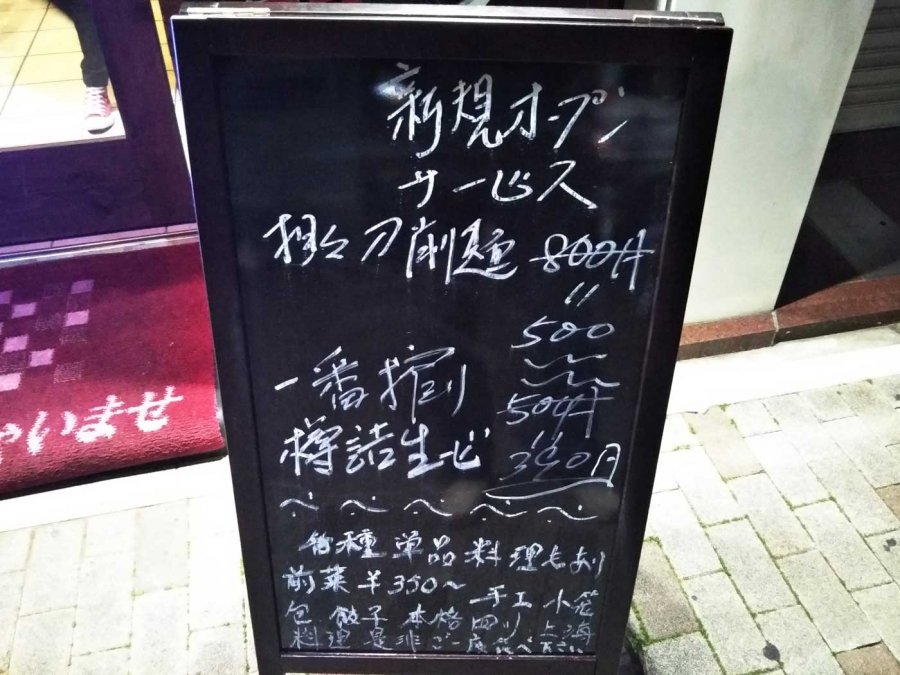 新規オープン
サービス
担々刀削麺 800円
500
一番搾り
504円
樽詰生ビ 390円
各種単品料理もあり
前菜￥350～
手工小笼
包 餃子 本格 四川 上海
料理 是非ご 食べ ださい
ゃいませ